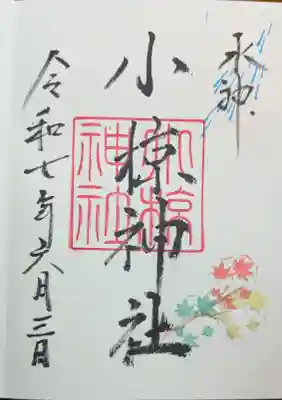 水神
小椋神社
小椋神社
令和七年六月三日